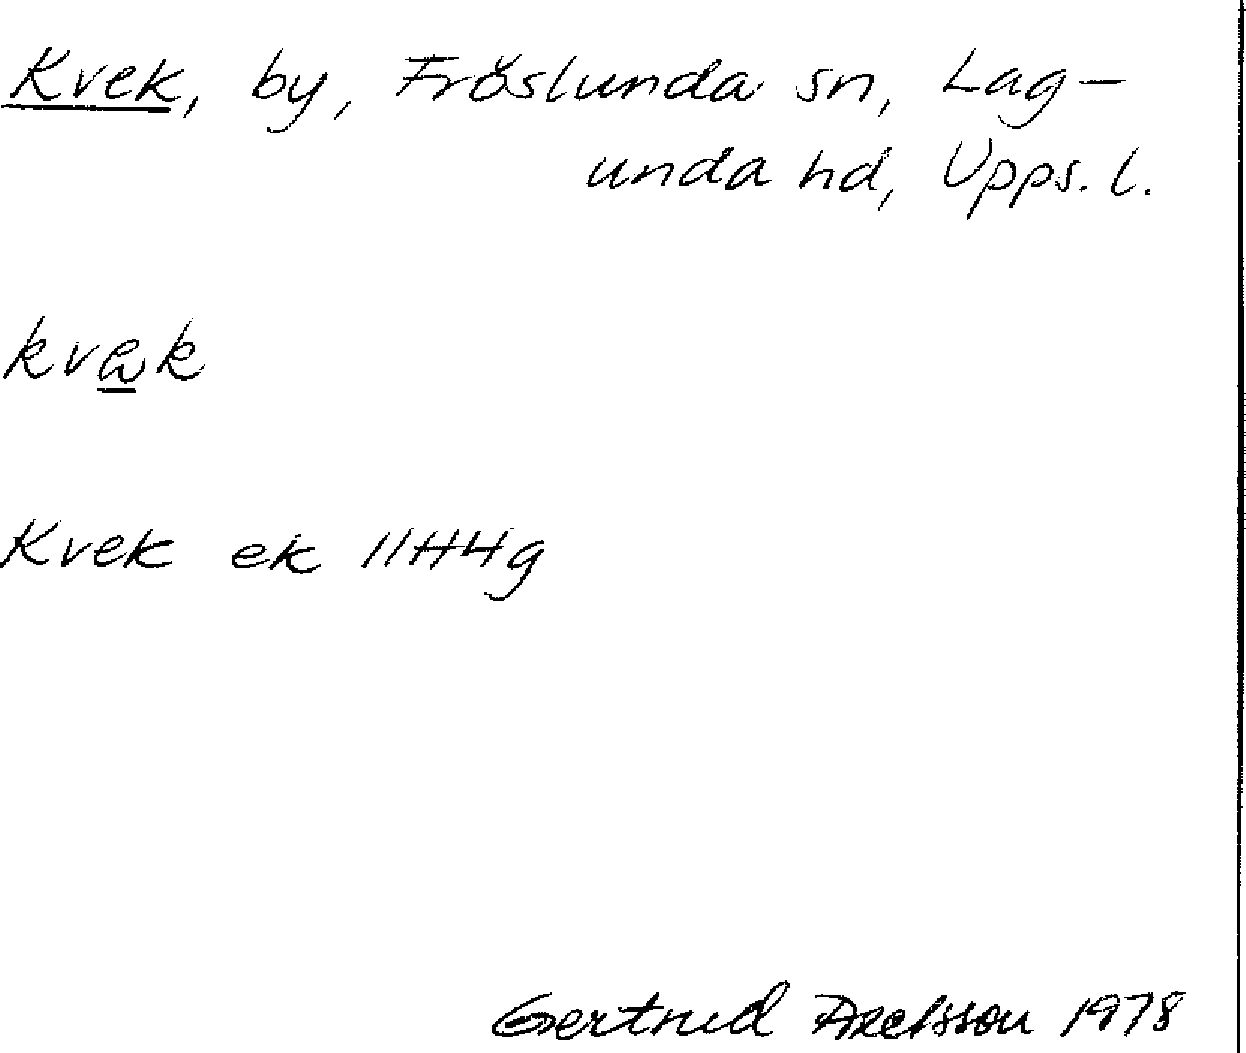 Kvek, by, Fröslunda sn, Lag-
unda hd, Upps. l.
kvæk
Kvek ek 11H4g
Gertrud Axelsson 1978